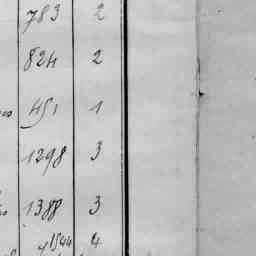 783 2
824 2
451 1
1298 3
1388 3
1544 4